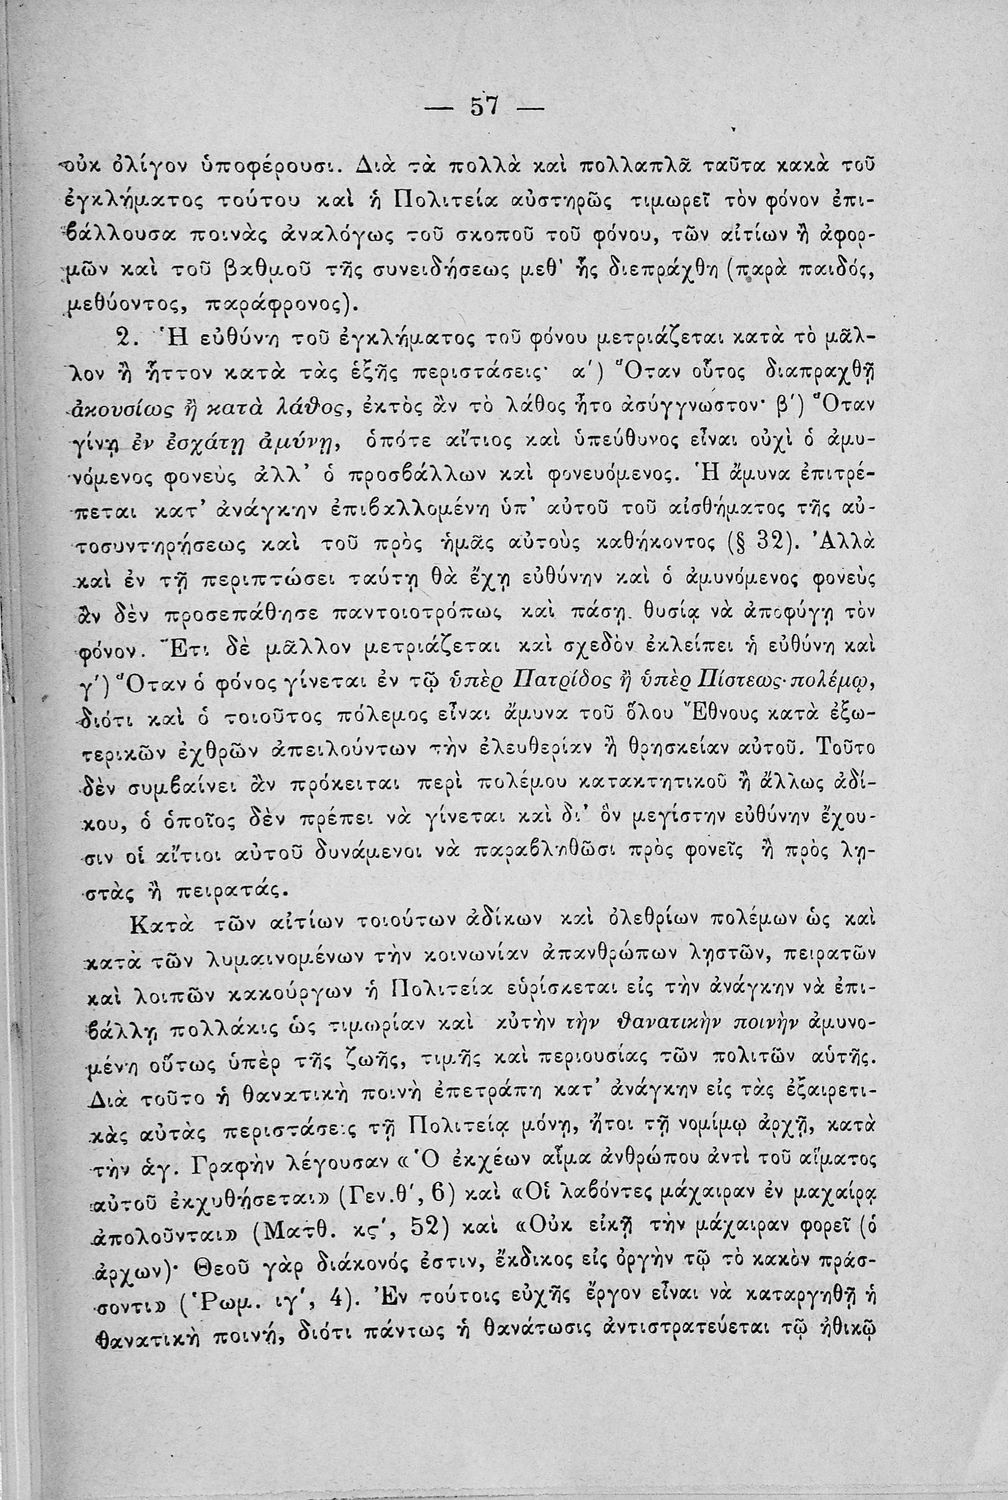 — 57 —
οὐκ ὀλίγον ὑποφέρουσι. Διὰ τὰ πολλὰ καὶ πολλαπλᾶ ταῦτα κακὰ τοῦ
ἐγκλήματος τούτου καὶ ἡ Πολιτεία αὐστηρῶς τιμωρεῖ τὸν φόνον ἐπι-
βάλλουσα ποινὰς ἀναλόγως τοῦ σκοποῦ τοῦ φόνου, τῶν αἰτίων ἢ ἀφορ-
μῶν καὶ τοῦ βαθμοῦ τῆς συνειδήσεως μεθ' ἧς διεπράχθη (παρὰ παιδός,
μεθύοντος, παράφρονος).
2. Ἡ εὐθύνη τοῦ ἐγκλήματος τοῦ φόνου μετριάζεται κατὰ τὸ μᾶλ-
λον ἢ ἧττον κατὰ τὰς ἑξῆς περιστάσεις· α') Ὅταν οὗτος διαπραχθῇ
ἀκουσίως ἢ κατὰ λάθος, ἐκτὸς ἂν τὸ λάθος ἦτο ἀσύγγνωστον· β') Ὅταν
γίνῃ ἐν ἐσχάτῃ ἀμύνῃ, ὁπότε αἴτιος καὶ ὑπεύθυνος εἶναι οὐχὶ ὁ ἀμυ-
νόμενος φονεὺς ἀλλ' ὁ προσβάλλων καὶ φονευόμενος. Ἡ ἄμυνα ἐπιτρέ-
πεται κατ' ἀνάγκην ἐπιβαλλομένη ὑπ' αὐτοῦ τοῦ αἰσθήματος τῆς αὐ-
τοσυντηρήσεως καὶ τοῦ πρὸς ἡμᾶς αὐτοὺς καθήκοντος (§ 32). Ἀλλὰ
καὶ ἐν τῇ περιπτώσει ταύτῃ θὰ ἔχῃ εὐθύνην καὶ ὁ ἀμυνόμενος φονεὺς
ἂν δὲν προσεπάθησε παντοιοτρόπως καὶ πάσῃ θυσίᾳ νὰ ἀποφύγῃ τὸν
φόνον. Ἔτι δὲ μᾶλλον μετριάζεται καὶ σχεδὸν ἐκλείπει ἡ εὐθύνη καὶ
γ') Ὅταν ὁ φόνος γίνεται ἐν τῷ ὑπὲρ Πατρίδος ἢ ὑπὲρ Πίστεως πολέμῳ,
διότι καὶ ὁ τοιοῦτος πόλεμος εἶναι ἄμυνα τοῦ ὅλου Ἔθνους κατὰ ἐξω-
τερικῶν ἐχθρῶν ἀπειλούντων τὴν ἐλευθερίαν ἢ θρησκείαν αὐτοῦ. Τοῦτο
δὲν συμβαίνει ἂν πρόκειται περὶ πολέμου κατακτητικοῦ ἢ ἄλλως ἀδί-
κου, ὁ ὁποῖος δὲν πρέπει νὰ γίνεται καὶ δι' ὃν μεγίστην εὐθύνην ἔχου-
σιν οἱ αἴτιοι αὐτοῦ δυνάμενοι νὰ παραβληθῶσι πρὸς φονεῖς ἢ πρὸς λῃ-
στὰς ἢ πειρατάς.
Κατὰ τῶν αἰτίων τοιούτων ἀδίκων καὶ ὀλεθρίων πολέμων ὡς καὶ
κατὰ τῶν λυμαινομένων τὴν κοινωνίαν ἀπανθρώπων λῃστῶν, πειρατῶν
καὶ λοιπῶν κακούργων ἡ Πολιτεία εὑρίσκεται εἰς τὴν ἀνάγκην νὰ ἐπι-
βάλλῃ πολλάκις ὡς τιμωρίαν καὶ αὐτὴν τὴν θανατικὴν ποινὴν ἀμυνο-
μένη οὕτως ὑπὲρ τῆς ζωῆς, τιμῆς καὶ περιουσίας τῶν πολιτῶν αὐτῆς.
Διὰ τοῦτο ἡ θανατικὴ ποινὴ ἐπετράπη κατ' ἀνάγκην εἰς τὰς ἐξαιρετι-
κὰς αὐτὰς περιστάσεις τῇ Πολιτείᾳ μόνῃ, ἤτοι τῇ νομίμῳ ἀρχῇ, κατὰ
τὴν ἁγ. Γραφὴν λέγουσαν «Ὁ ἐκχέων αἷμα ἀνθρώπου ἀντὶ τοῦ αἵματος
αὐτοῦ ἐκχυθήσεται» (Γεν. θ', 6) καὶ «Οἱ λαβόντες μάχαιραν ἐν μαχαίρᾳ
ἀπολοῦνται» (Ματθ. κς', 52) καὶ «Οὐκ εἰκῇ τὴν μάχαιραν φορεῖ (ὁ
ἄρχων)· Θεοῦ γὰρ διάκονός ἐστιν, ἔκδικος εἰς ὀργὴν τῷ τὸ κακὸν πράσ-
σοντι» (Ῥωμ. ιγ', 4). Ἐν τούτοις εὐχῆς ἔργον εἶναι νὰ καταργηθῇ ἡ
θανατικὴ ποινή, διότι πάντως ἡ θανάτωσις ἀντιστρατεύεται τῷ ἠθικῷ